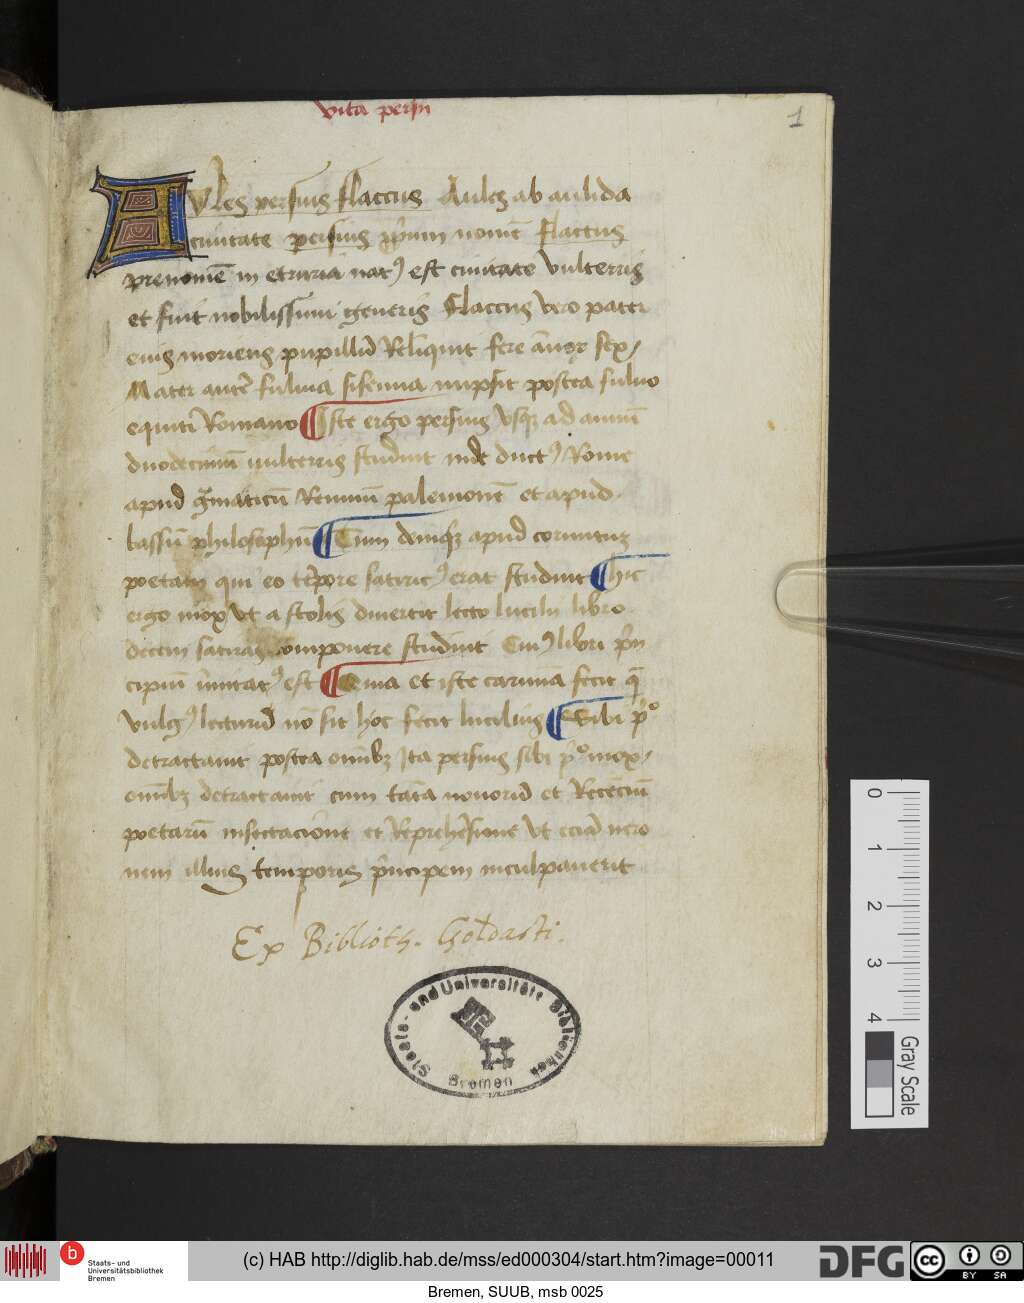 vita persii
1
AVles persius flaccus Aules ab aulida
ciuitate persius pprium nomē flaccus
prenomē in etruria natꝰ est ciuitate vulterris
et fuit nobilissimi generis flaccus vero pater
eius moriens pupillū Reliquit fere ānoꝝ sex
Mater autē fuluia sisenna nupsit postea fuluo
equiti Romano ¶ Iste ergo persius vsqꝫ ad annū
duodecimū uulterris studuit inde ductꝰ Rome
apud grāmaticū Remiū palemonē et apud
bassū philosophū ¶ Cum deniqꝫ apud cornutū
poetam qui eo tēpore satiricꝰ erat studuit ¶ hic
ergo mox vt a scolis diuertit lecto lucilii libro
decem satiras componere studuit Cuiꝰ libri prin
cipiū imitatꝰ est ¶ Qina et iste carmina fecit q̄
vulgꝰ lecturū nō sit hoc fecit lucilius ¶ Sibi pͦ
detractauit postea omībꝫ Ita persius sibi pͦ mox
omībꝫ detractauit cum tāta nouorū et Recēciū
poetarū insectacione et Reprehēsione vt eciā nero
nem illius temporis prīncipem inculpauerit
Ex Biblioth. Goldasti.
Staats- und Universitäts Bibliothek
Bremen
0
1
2
3
4
Gray Scale
b Staats- und
Universitätsbibliothek
Bremen
(c) HAB http://diglib.hab.de/mss/ed000304/start.htm?image=00011
DFG
cc BY SA
Bremen, SUUB, msb 0025